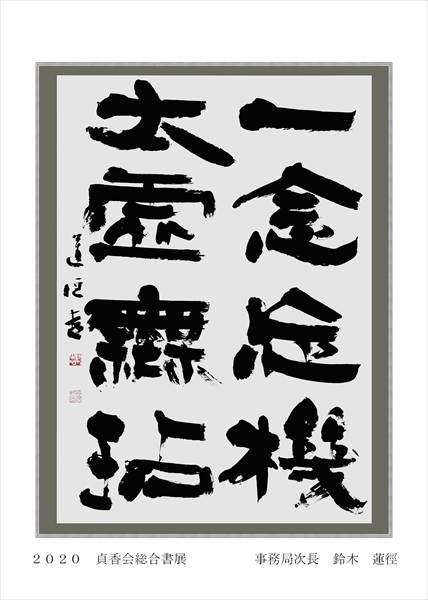 一念忘機
太虚無玷
蓮径
２０２０　貞香会総合書展　事務局次長　鈴木　蓮徑